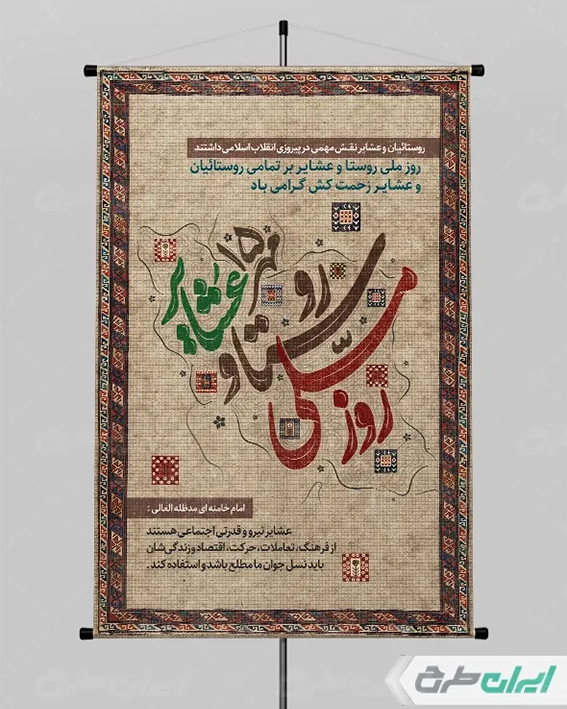 روستائیان و عشایر نقش مهمی در پیروزی انقلاب اسلامی داشتند
روز ملی روستا و عشایر بر تمامی روستائیان
و عشایر زحمت کش گرامی باد
۱۵ مهر
روز ملی
روستا و
عشایر
امام خامنه ای مدظله العالی :
عشایر نیرو و قدرتی اجتماعی هستند
از فرهنگ، تعاملات، حرکت، اقتصاد و زندگی‌شان
باید نسل جوان ما مطلع باشد و استفاده کند.
ایران طرح